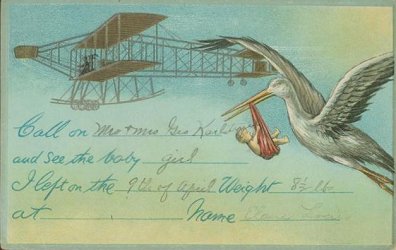 Call on Mrs + Mrs Geo Karl
and see the baby girl
I left on the 9th of April Weight 8½ lb
at Name